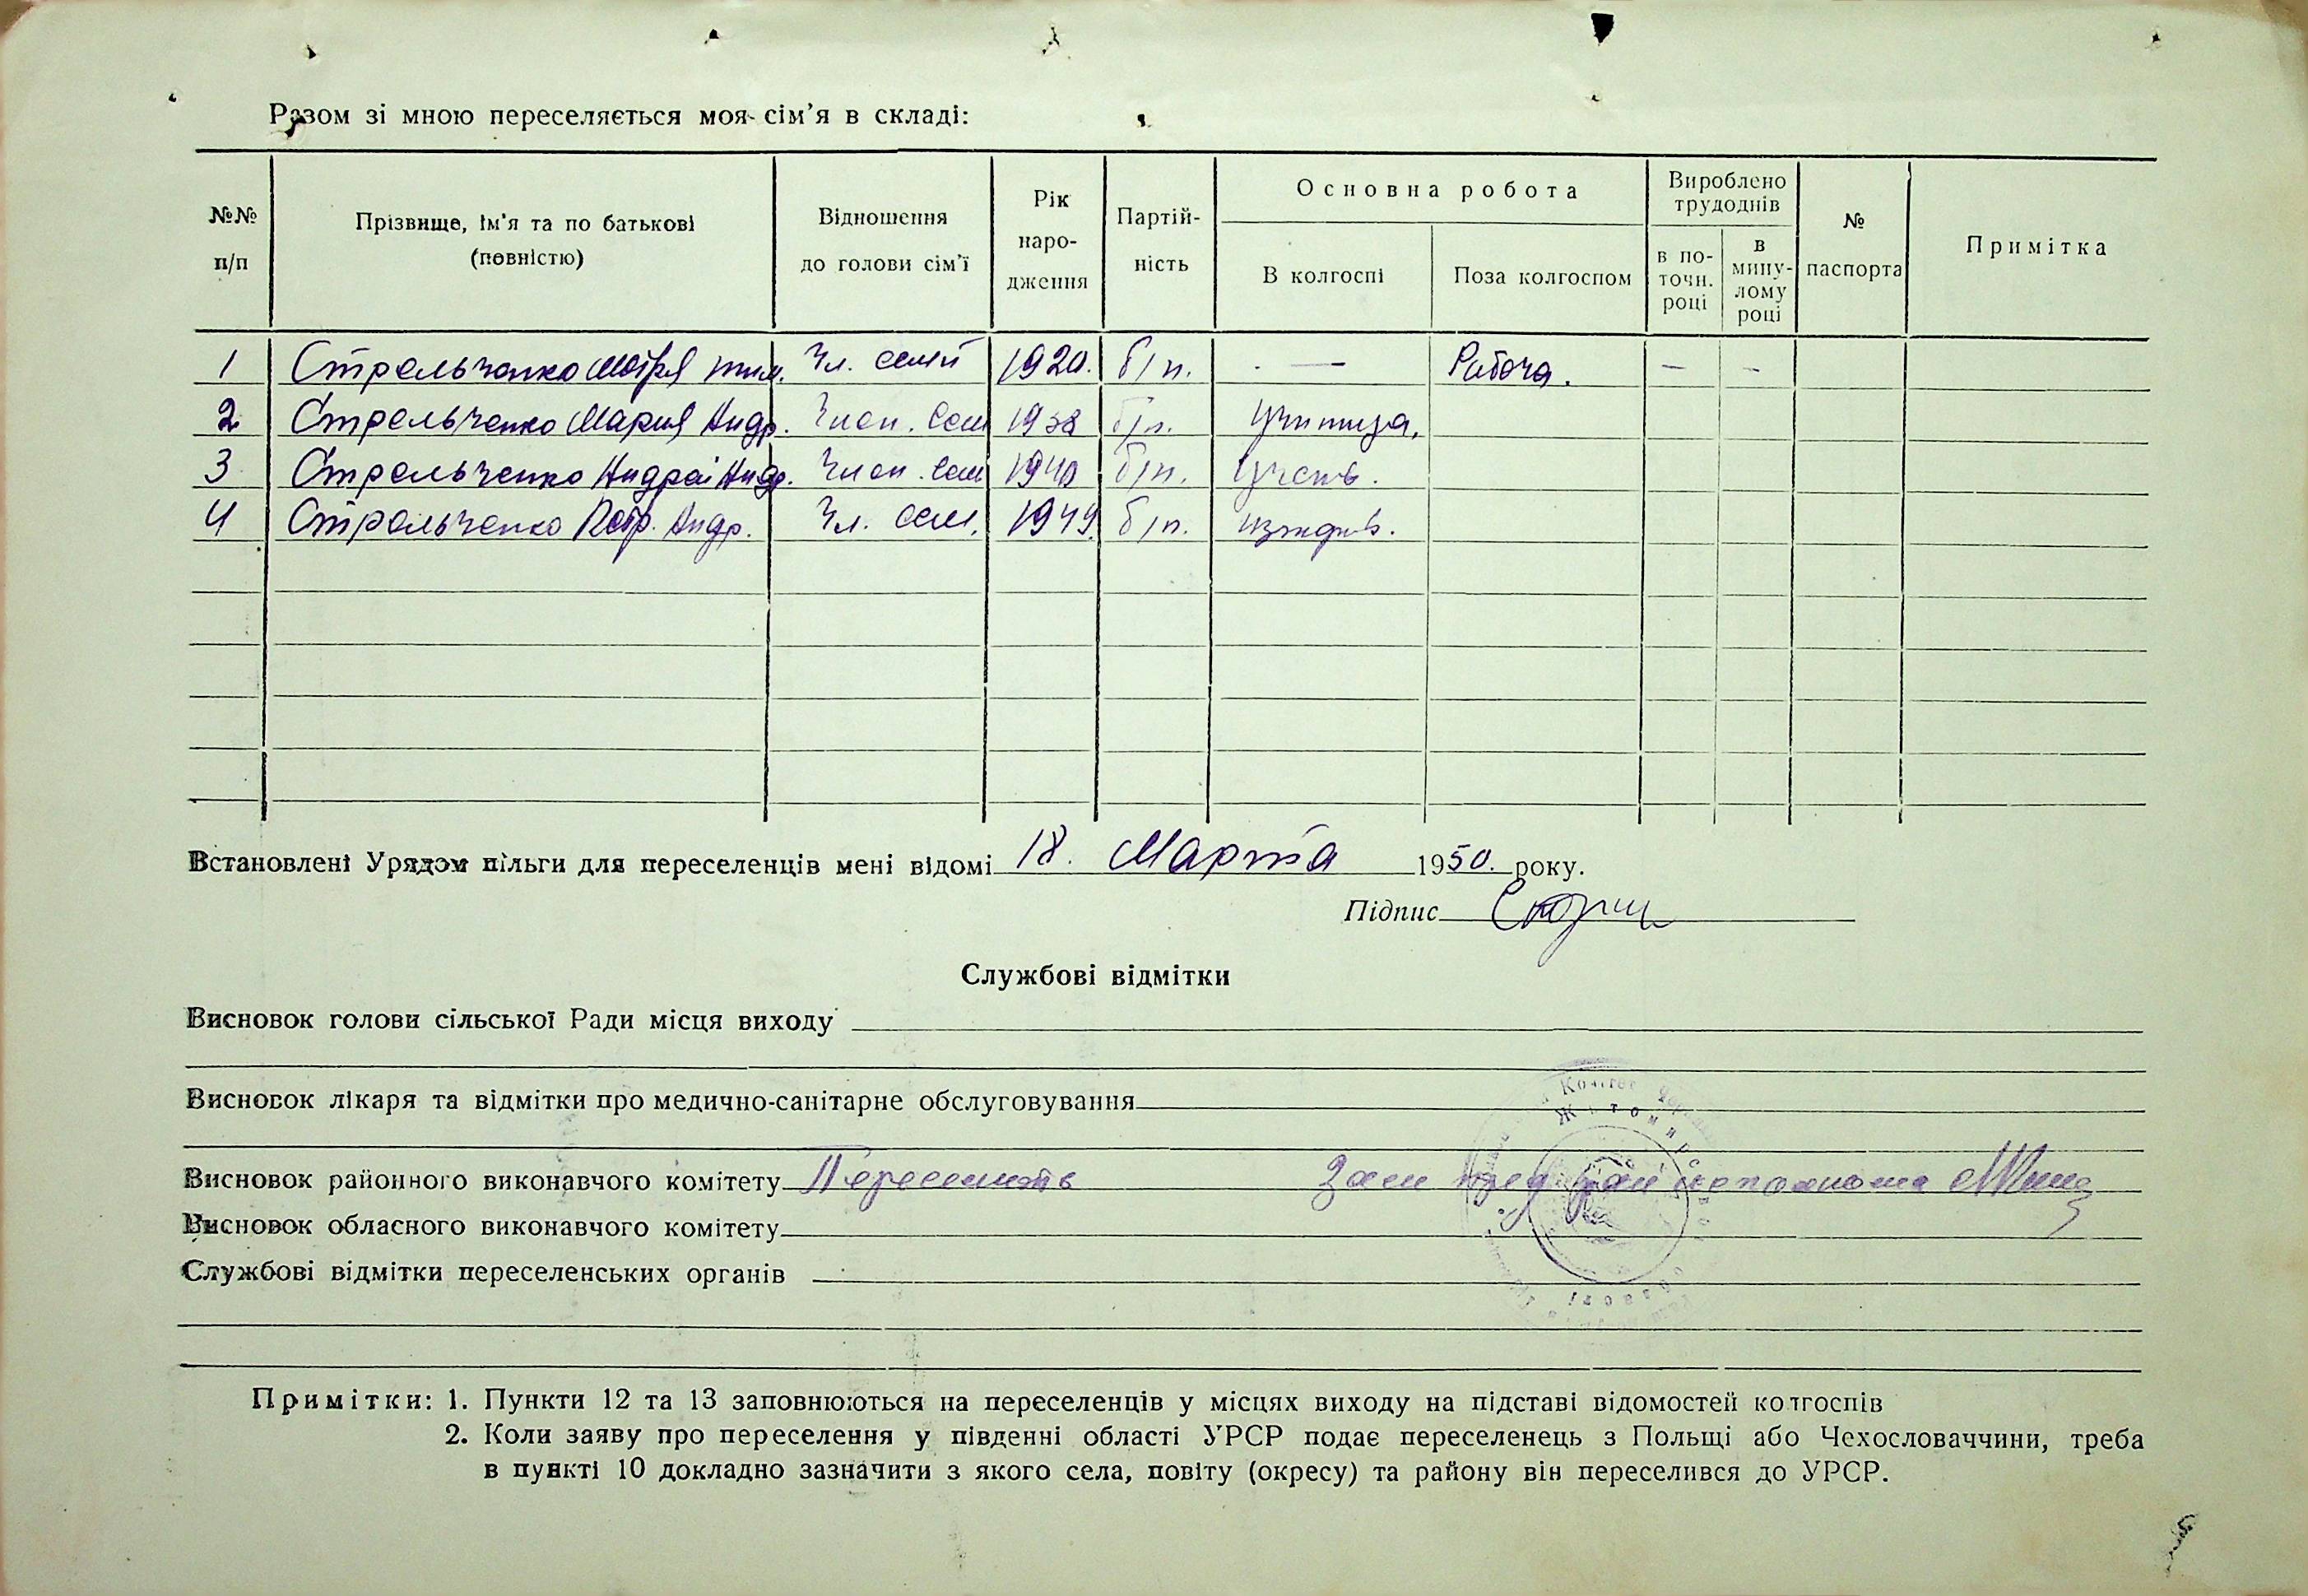 Разом зі мною переселяється моя сім'я в складі:
№№ п/п
Прізвище, ім'я та по батькові (повністю)
Відношення до голови сім'ї
Рік народження
Партійність
Основна робота
В колгоспі
Поза колгоспом
Вироблено трудоднів
в поточн. році
в минулому році
№ паспорта
Примітка
1 Стрельченко Мотря тим. Чл. семи 1920. б/п. — Рабоча. — —
2 Стрельченко Мария Андр. Член. Сем 1938 б/п. Учитица,
3 Стрельченко Андрей Андр. Член. Сем 1940 б/п. Учень.
4 Стрельченко Петр. Андр. Чл. сем. 1949. б/п. иждив.
Встановлені Урядом пільги для переселенців мені відомі 18. Марта 1950. року.
Підпис
Службові відмітки
Висновок голови сільської Ради місця виходу
Висновок лікаря та відмітки про медично-санітарне обслуговування
Висновок районного виконавчого комітету Переселить Зам пред рай
Висновок обласного виконавчого комітету
Службові відмітки переселенських органів
Примітки: 1. Пункти 12 та 13 заповнюються на переселенців у місцях виходу на підставі відомостей колгоспів
2. Коли заяву про переселення у південні області УРСР подає переселенець з Польщі або Чехословаччини, треба
в пункті 10 докладно зазначити з якого села, повіту (окресу) та району він переселився до УРСР.